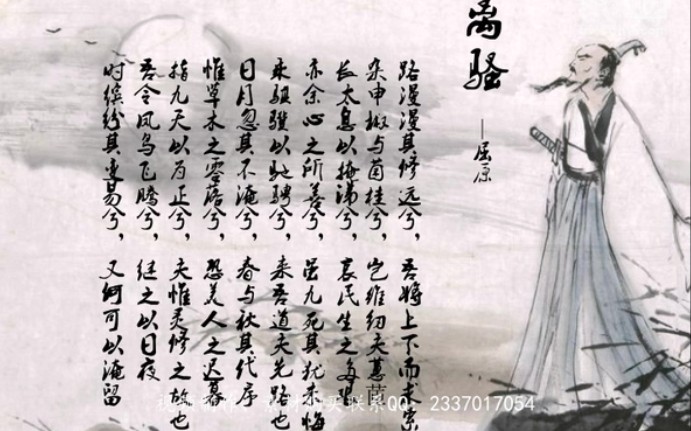 离骚
—屈原
路漫漫其修远兮，吾将上下而求索
杂申椒与菌桂兮，岂维纫夫蕙茞
长太息以掩涕兮，哀民生之多艰
亦余心之所善兮，虽九死其犹未悔
乘骐骥以驰骋兮，来吾道夫先路也
日月忽其不淹兮，春与秋其代序
惟草木之零落兮，恐美人之迟暮
指九天以为正兮，夫惟灵修之故也
吾令凤鸟飞腾兮，继之以日夜
时缤纷其变易兮，又何可以淹留
联系QQ：2337017054